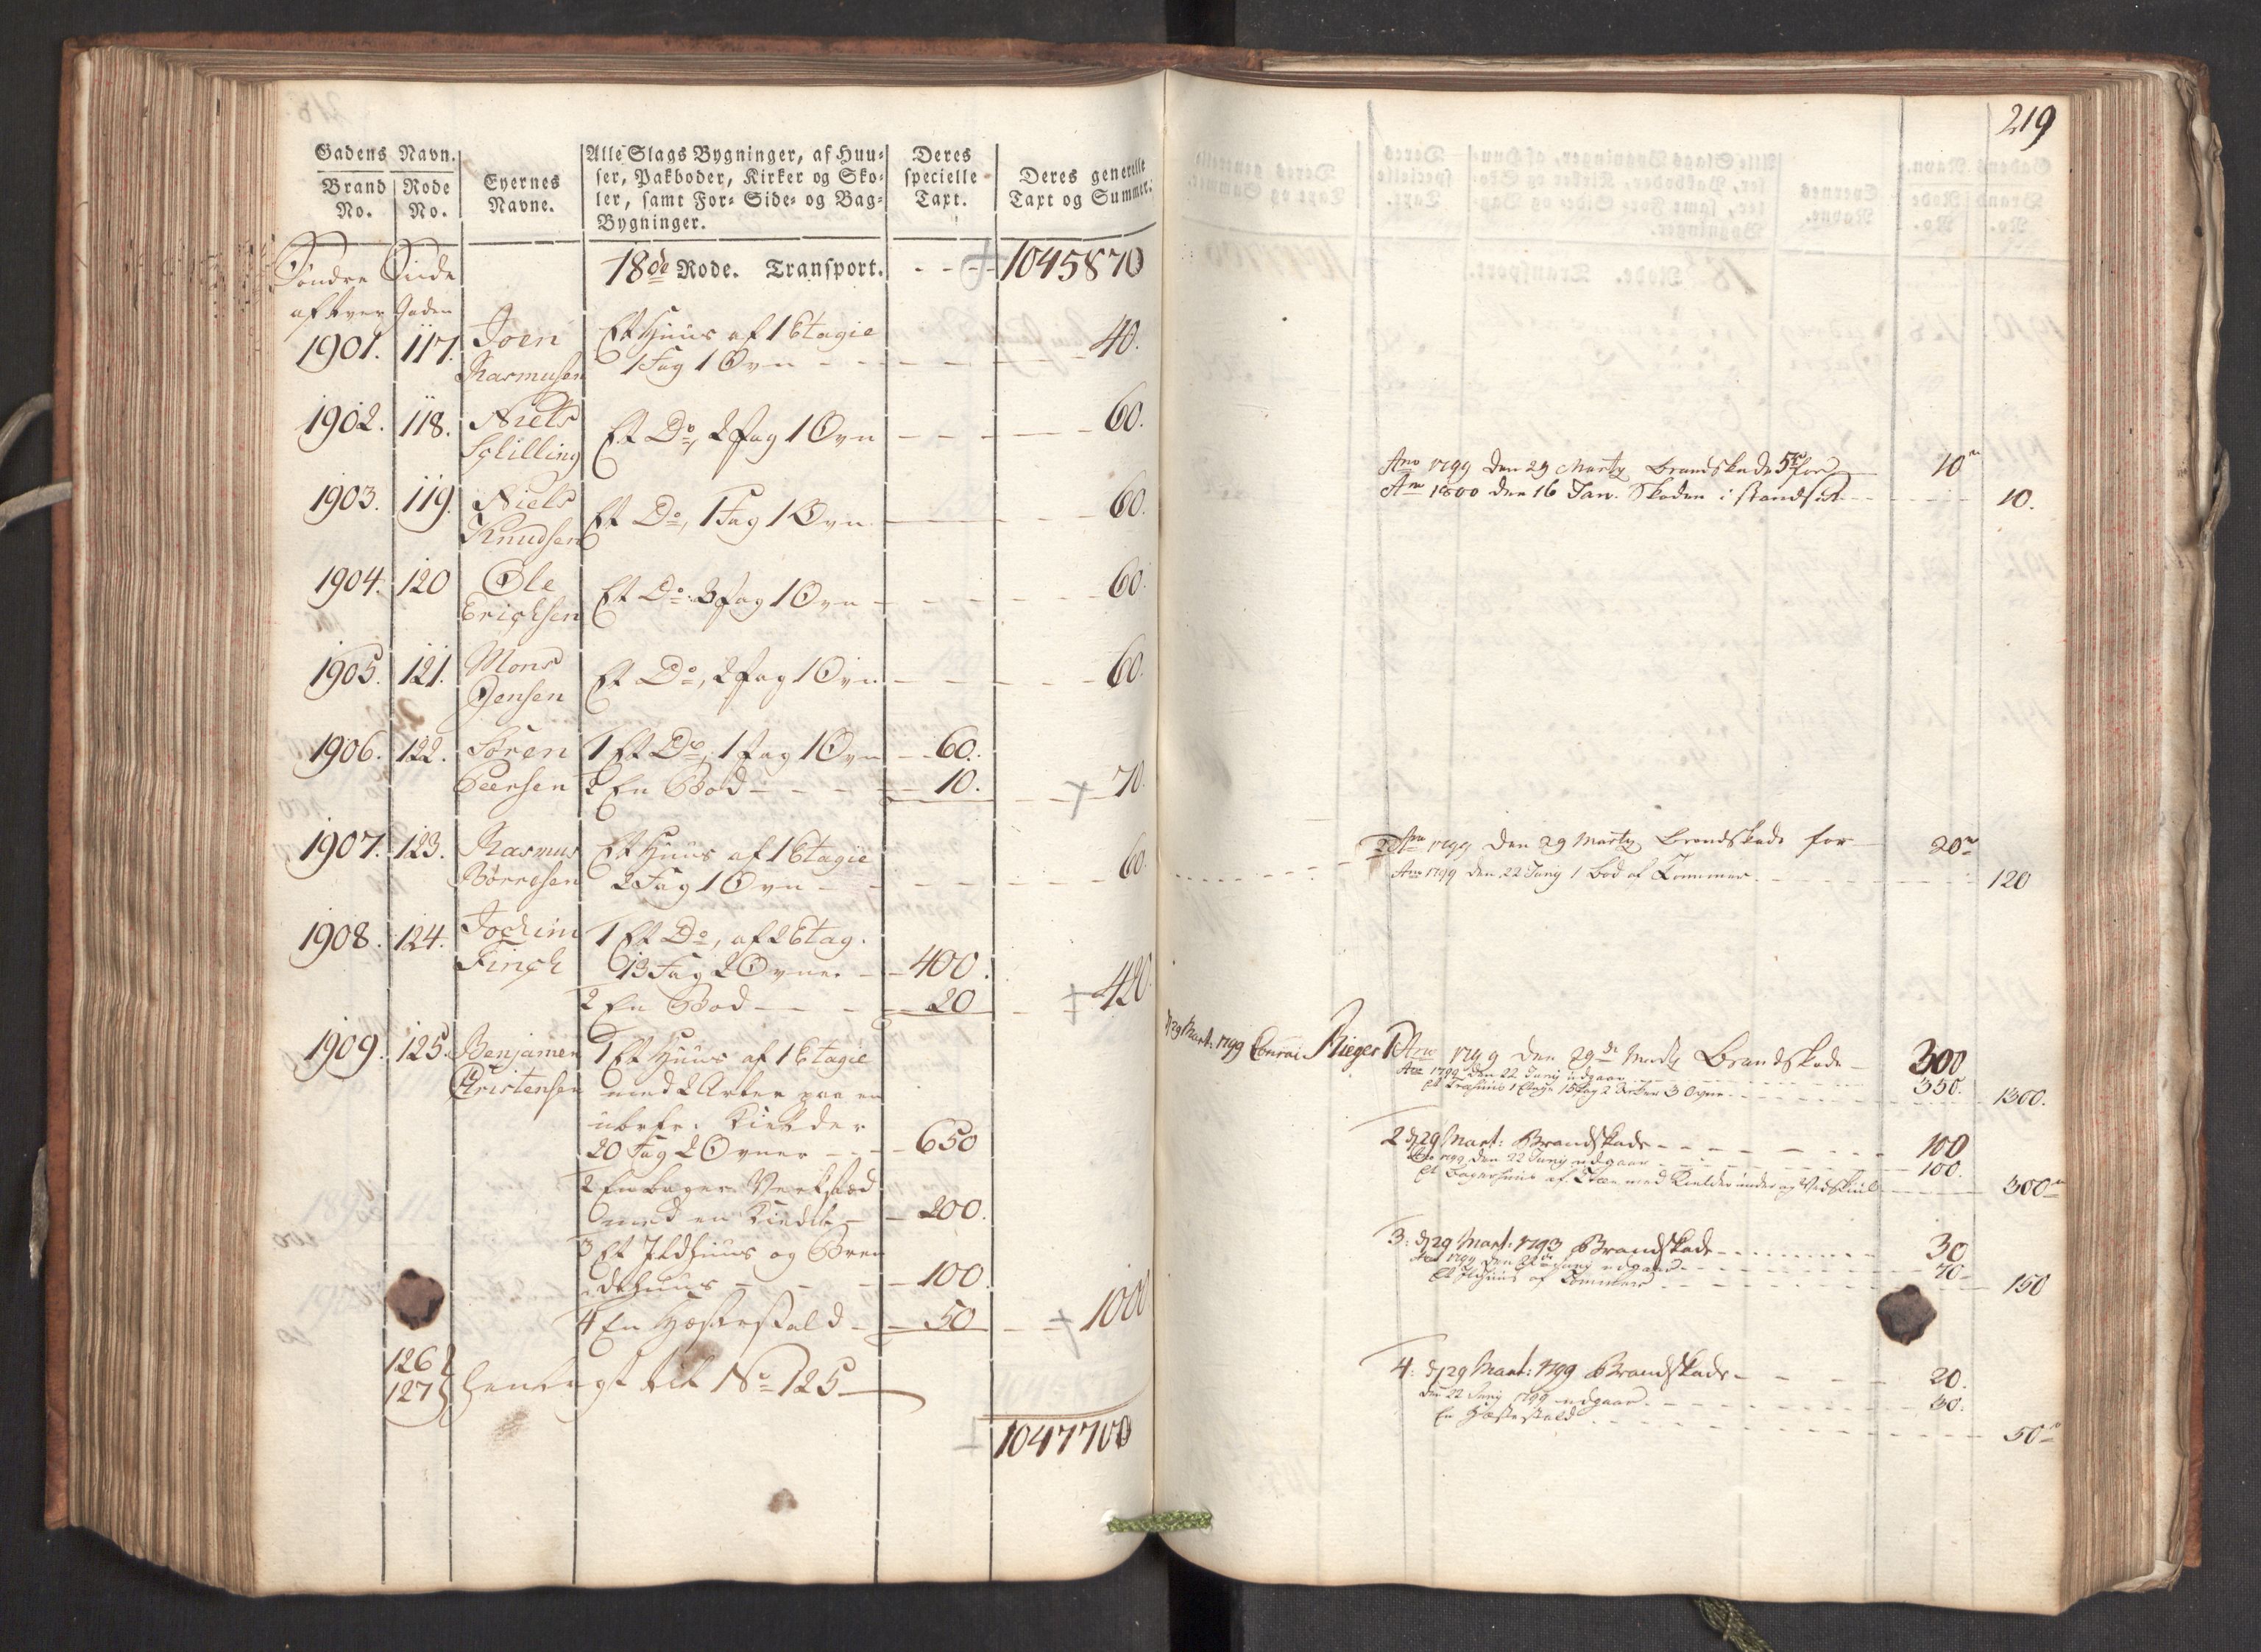 Gadens Navn.
Brand No.
Rode No.
Eyernes Navne.
Alle Slags Bygninger, af Huu-
ser, Pakboder, Kirker og Sko-
ler, samt For- Side- og Bag-
Bygninger.
Deres specielle Taxt.
Deres generelle Taxt og Summer.
Söndre Siide 18de Rode. Transport. - - - 1045870
af Tver Gaden
1901. 117. Joen Et Huus af 1 Etagie
Rasmusen 1 Fag 1 Ovn - - - 40.
1902. 118. Niels
Schilling Et Do, 2 Fag 1 Ovn - - - 60.
1903. 119. Niels
Knudsen Et Do, 1 Fag 1 Ovn - - - 60.
1904. 120 Ole
Erichsen Et Do. 3 Fag 1 Ovn - - - 60.
1905. 121. Mons
Jensen Et Do, 2 Fag 1 Ovn - - - 60.
1906. 122. Sören 1 Et Do, 1 Fag 1 Ovn - 60.
Peersen 2 En Bod - - - 10. - - 70.
1907. 123. Rasmus Et Huus af 1 Etagie
Börresen 2 Fag 1 Ovn - - - 60.
1908. 124. Jochim 1 Et Do, af 2 Etag.
Finch 13 Fag 2 Ovner - 400.
2 En Bod - - - 20 - 420.
1909. 125. Benjamen 1 Et Huus af 1 Etagie
Christensen med 2 Arker paa en
Kielder
20 Fag 2 Ovner - - 650
2 En Bager Verksted
med en Kielder - 200.
3 Et Ildhuus og Bren
dehuus - - - 100.
4 En Hæstestald - 50 - - 1000
126
127 henlagt til No 125
1047700
219
Ano 1799 den 29 Marty Brandskade for - 10
Ano 1800 den 16 Jan. Skaden i standsat - - - 10.
2 Ano 1799 den 29 Marty Brandskade for - 20
Ano 1799 den 22 Juny 1 Bod af Tømmer - - - 120
d 29 Mart. 1799 Conrai Rieger 1 Ano 1799 den 29de Marty Brandskade - 300
Ano 1799 den 22 Juny udgaar - - - 350.
Et Træhuus 1 Etage 15 Fag 2 Arker 3 Ovne - - - 1300.
2 d 29 Mart: Brandskade - - - 100
Ano 1799 den 22 Juny udgaar - - - 100.
Et Bagerhuus af Steen med Kielder under og Vedskiul - - - 300
3: d 29 Mart: 1793 Brandskade - - - 30
Ano 1799 den 22de Juny udgaar - - - 70
Et Ildhuus af Tømmer - - - 150
4: d 29 Mart: 1799 Brandskade - - - 20.
den 22 Juny 1799 udgaar - - - 30.
En Hæstestald - - - 50